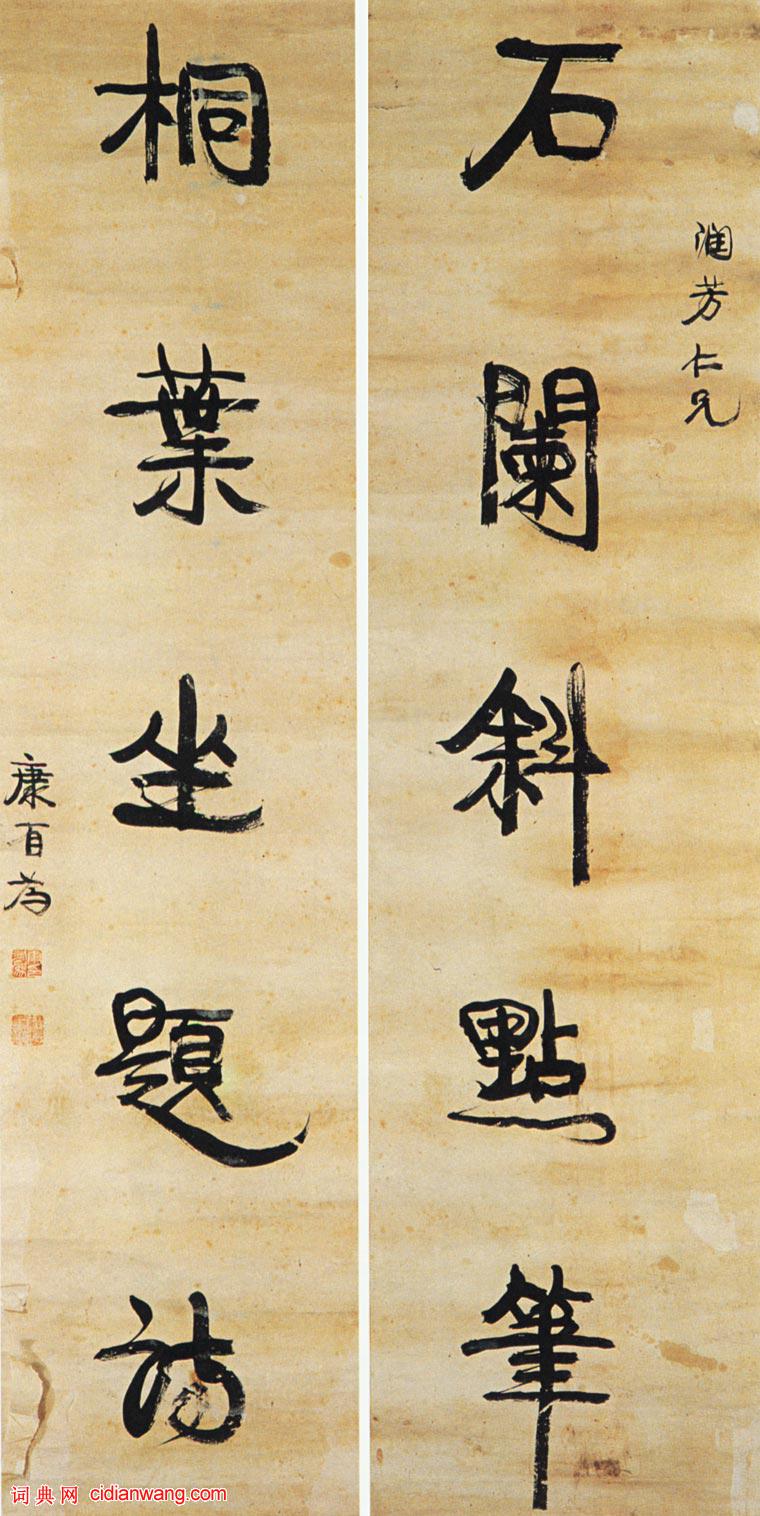 润芳仁兄
石闌斜點筆
桐葉坐題詩
康有为
词典网 cidianwang.com